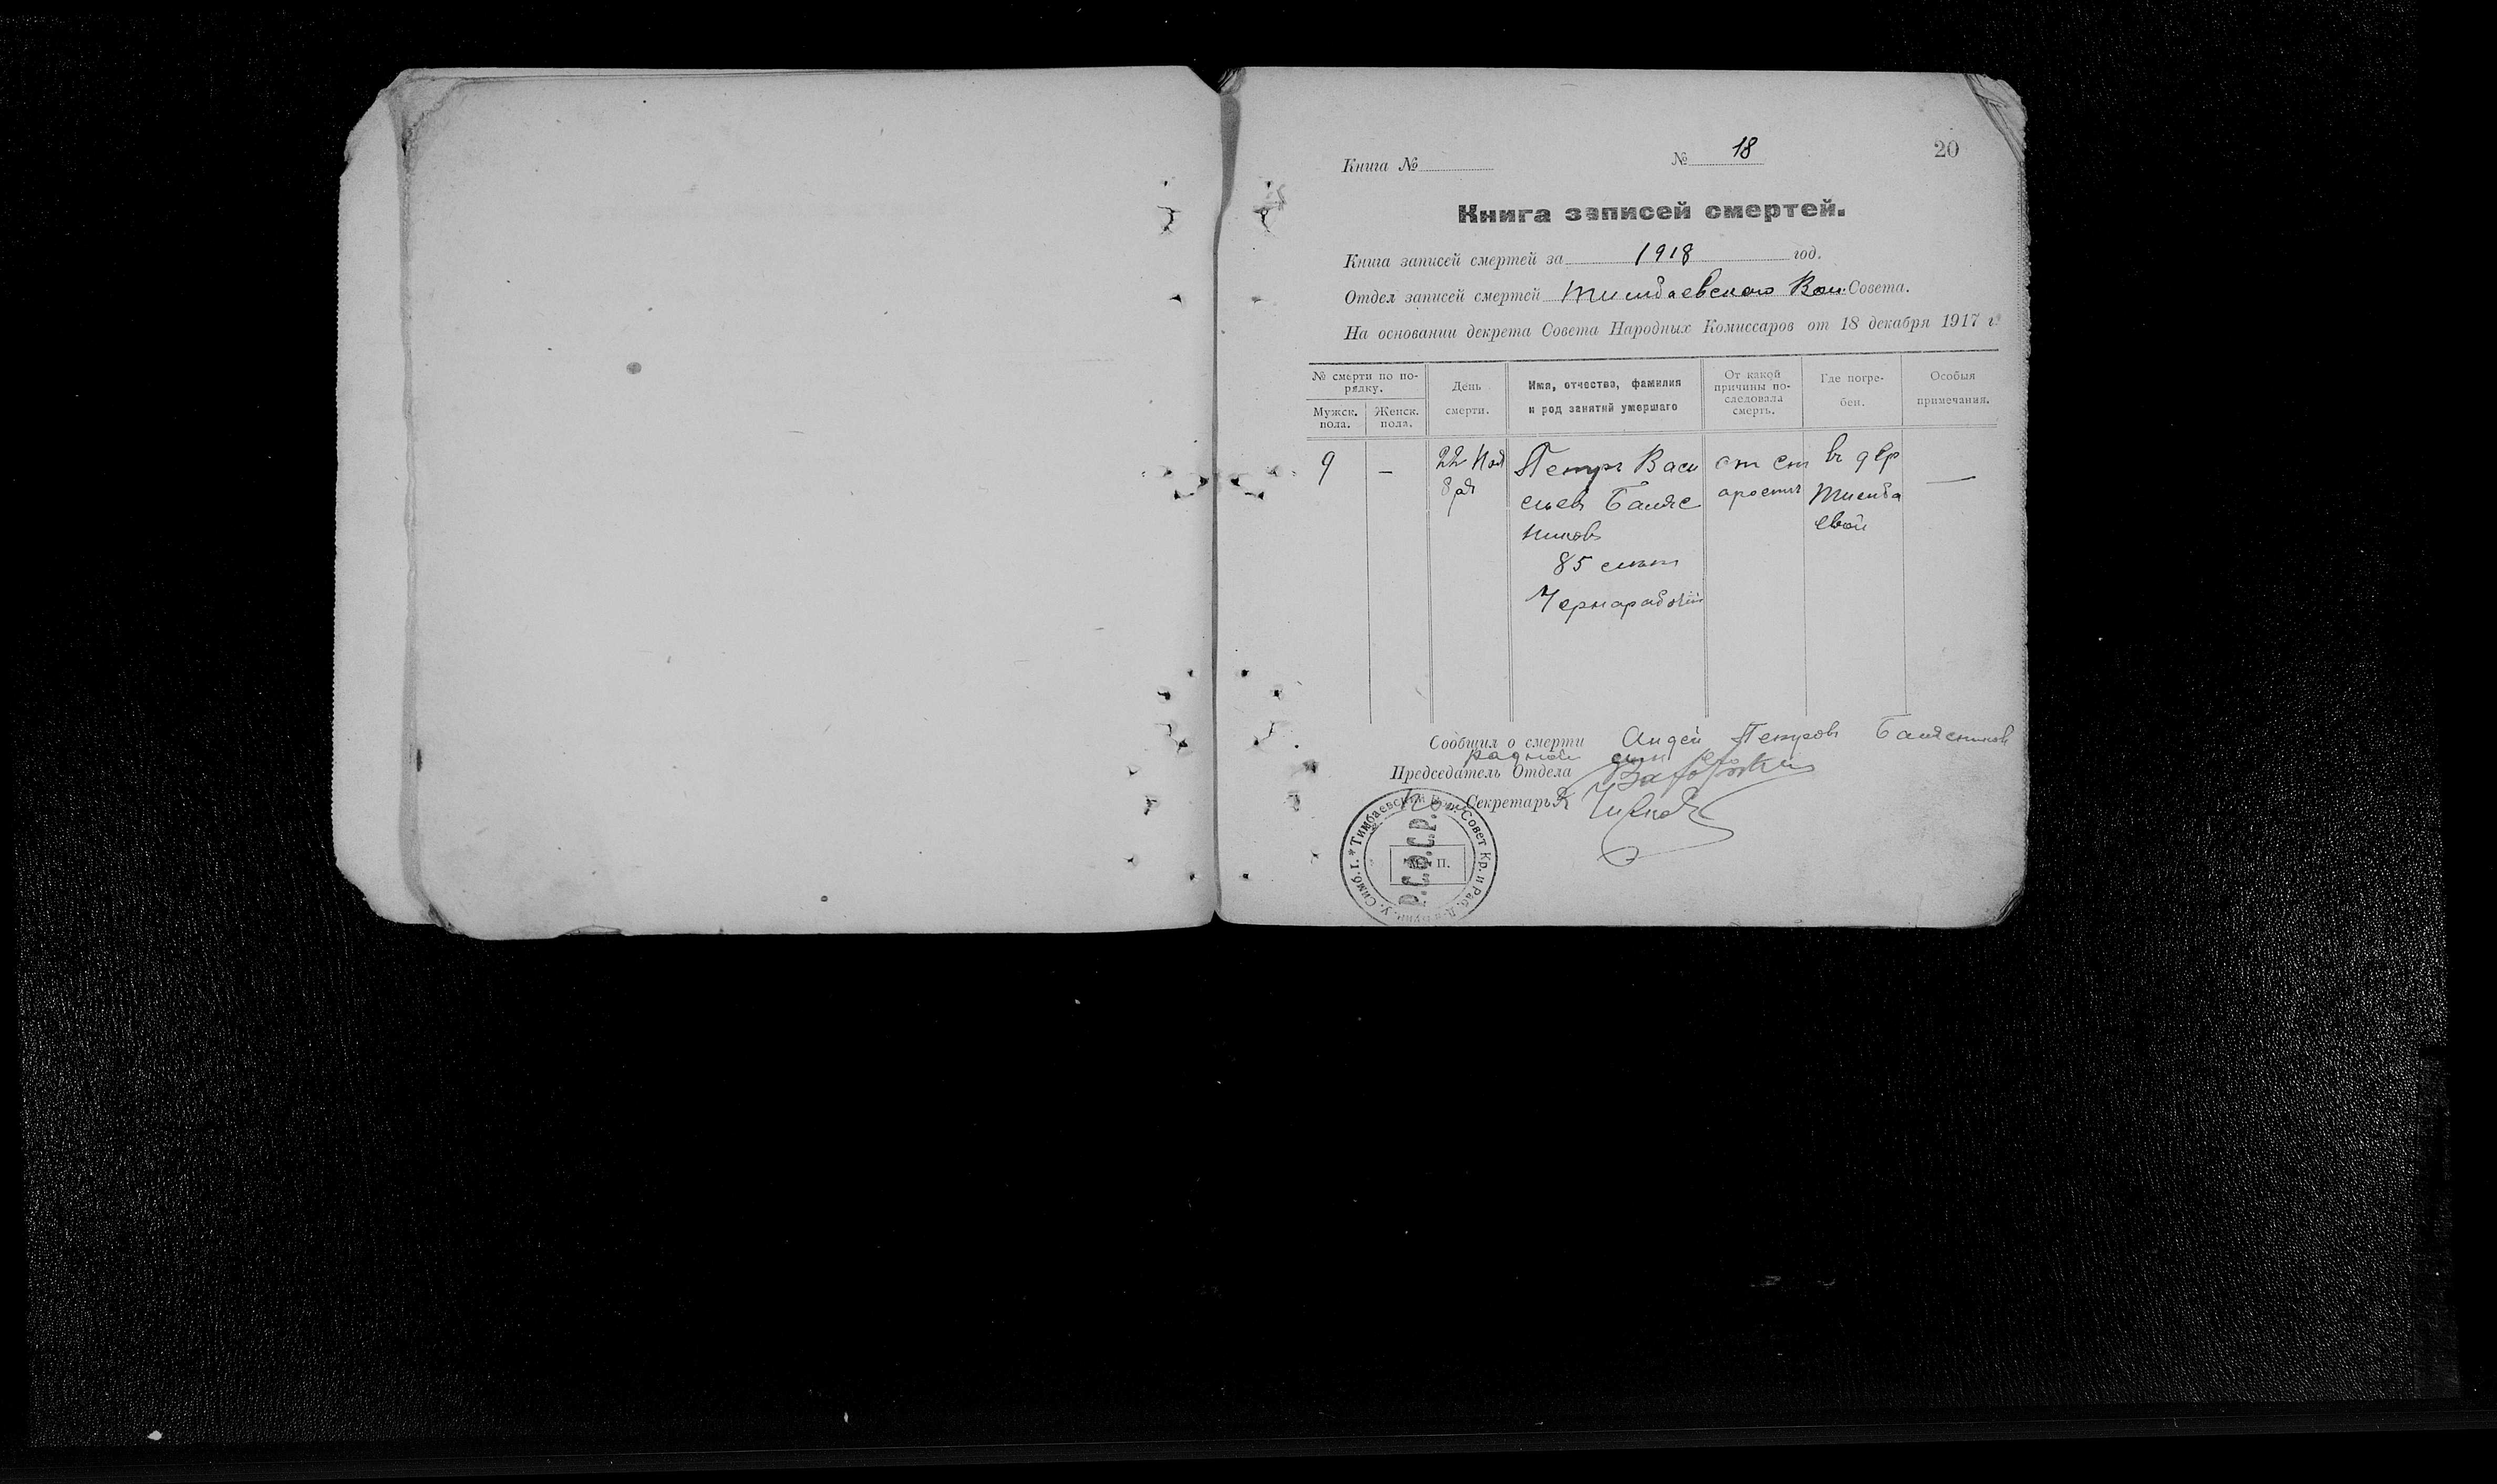 Книга №
№ 18
20
Книга записей смертей.
Книга записей смертей за 1918 год.
Отдел записей смертей Тимбаевского Вол. Совета.
На основании декрета Совета Народных Комиссаров от 18 декабря 1917 г.
№ смерти по по-
рядку.
Мужск.
пола.
Женск.
пола.
День
смерти.
Имя, отчество, фамилия
и род занятий умершаго
От какой
причины по-
следовала
смерть.
Где погре-
бен.
Особыя
примечания.
9
—
22 Ноя
бря
Петръ Васи
льевъ Баляс
никовъ
85 лѣтъ
Чернарабочій
от ст
арости
въ дер
Тимба
евой
—
Сообщил о смерти Андей Петровъ Балясниковъ
радной сын
Председатель Отдела
Секретарь
Тимбаевский Вол. Совет Кр. и Раб. Д. Буин. у. Симб. г. *
Р.С.Ф.С.Р.
М. П.